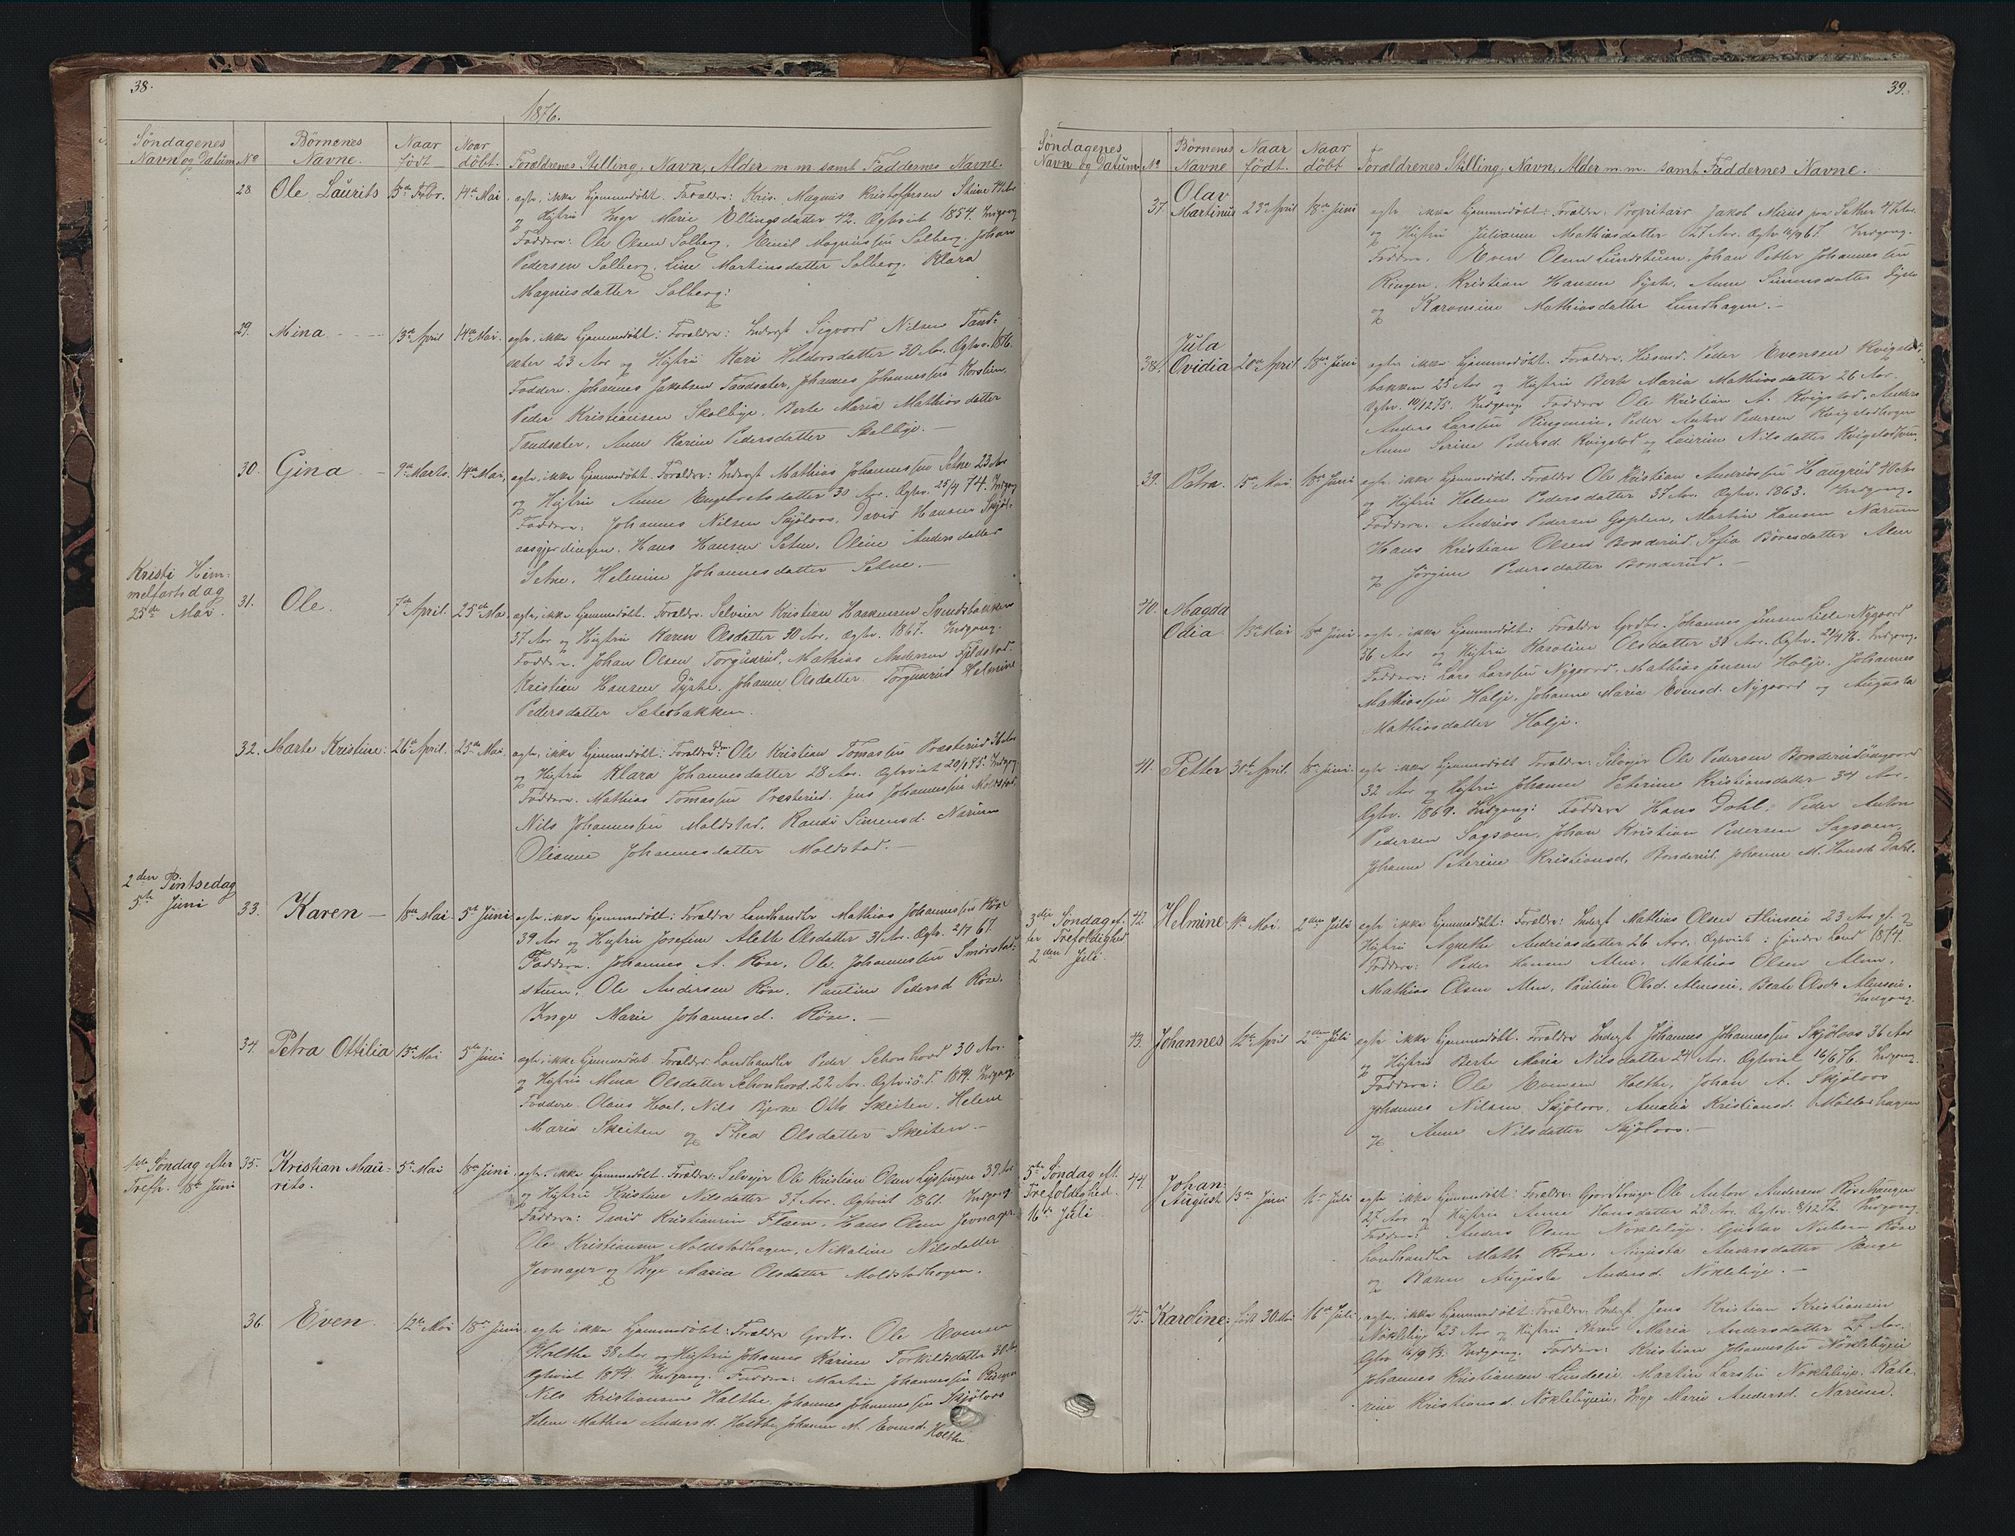 38.
1876.
Søndagenes Navn og Datum No Børnenes Navne. Naar født Naar døbt. Forældrenes Stilling, Navn, Alder m m samt Faddernes Navne.
28 Ole Laurits 5te Febr. 14de Mai ægte, ikke hjemmedøbt. Forældre: Magnus Kristoffersen
og Hustru Inge Marie Ellingsdatter 42. Egtviet 1854. Indgang
Faddere: Ole Olsen Solberg, Emil Magnussen Solberg, Johan
Pedersen Solberg, Line Martinsdatter Solberg. Klara
Magnusdatter Solberg:
29. Mina 13de April 14de Mai. ægte, ikke hjemmedøbt: Forældre: Inderst Sigvard Nilsen Tand-
sæter 23 Aar og Hustru Kari 30 Aar. Egtv. 1876.
Faddere. Johannes Jakobsen Tandsæter, Johannes Johannessen
Peder Kristiansen Skolbye. Berte Maria Mathiasdatter
Tandsæter, Anne Karine Pedersdatter Skolbye. —
30. Gina 9de Marts. 14de Mai. ægte, ikke hjemmedøbt. Forældre: Inderst Mathias Johannessen Setne 23 Aar
og Hustru Anne Engebretsdatter 30 Aar. Egtv. 25/4 74. Indgang
Faddere: Johannes Nilsen Skjølaas, David Hansen Skjøl-
aasgjerdingen, Hans Hansen Setne, Oline Andersdatter
Setne, Helmine Johannesdatter Setne. —
Kristi Him-
melfartsdag
25de Mai. 31. Ole. 7de April. 25de Mai ægte, ikke hjemmedøbt. Forældre: Selveier Kristian Haakensen
37 Aar og Hustru Karen Olsdatter 30 Aar. Egtv. 1867. Indgang.
Faddere. Johan Olsen Torgunrud, Mathias Andersen Fjeldstad.
Kristian Hansen Dyste, Johanne Olsdatter Torgunrud Helmine
Pedersdatter Sætesbakken.
32. Marte Kristine: 26de April. 25de Mai ægte, ikke hjemmedøbt: Forældre: Ole Kristian Tomassen Præsterud 36 Aar
og Hustru Klara Johannesdatter 28 Aar. Egtviet Indgang
Faddere: Mathias Tomassen Præsterud. Jens Johannessen Moldstad,
Nils Johannessen Moldstad, Randi Simensd. Narum
Olianne Johannesdatter Moldstad. —
2den Pintsedag
5te Juni 33. Karen — 18de Mai. 5te Juni ægte, ikke hjemmedøbt: Forældre Landhandler Mathias Johannessen Røse
39 Aar og Hustru Josefine Alette Olsdatter 31 Aar. Egtv. 2/7 67.
Faddere. Johannes A. Røse, Ole Johannessen Smørstad-
stuen, Ole Andersen Røse, Pauline Pedersd Røse,
Inge Marie Johannesd. Røse. —
34. Petra Ottilia 13de Mai 5te Juni ægte, ikke hjemmedøbt Forældre: Landhandler Peder Schonhovd 30 Aar.
og Hustru Mina Olsdatter Schonhovd, 22 Aar. 1874. Indgang
Faddere. Olaus Hoel, Nils Bjerke Otto Skeiten. Helene
Maria Skeiten og Thea Olsdatter Skeiten —
1ste Søndag efter
Trefh. 18de Juni 35. Kristian Mau-
rits. 5te Mai 18de Juni ægte, ikke hjemmedøbt. Forældre: Selveier Ole Kristian Olsen 39 Aar
og Hustru Kristine Nilsdatter 37 Aar. Egtviet 1861. Indgang
Faddere: David Kristiansen Flaen, Hans Olsen Jevnager,
Ole Kristiansen Moldstadhagen, Nikoline Nilsdatter
Jevnager og Inge Maria Olsdatter Moldstadhagen.
36. Even. 12te Mai 18de Juni ægte ikke hjemmedøbt: Forældre Grdbr. Ole Evensen
Holthe 38 Aar og Hustru Johannes Karine Torkildsdatter
Egtviet 1874 Indgang. Faddere: Martin Johannessen Ringen
Nils Kristiansen Holthe, Johannes Johannessen Skjølaas
Helene Mathea Andersd. Holthe, Johanne M. Evensd. Holthe.
39.
Søndagenes Navn og Datum No Børnenes Navne Naar født. Naar døbt Forældrenes Stilling, Navn, Alder m. m. samt Faddernes Navne.
37 Olav
Martinus 23de April 18de Juni ægte ikke hjemmedøbt: Forældre: Proprietair Jakob
og Hustru Julianne Mathiasdatter 27 Aar. Indgang.
Faddere. Even Olsen Lundstuen, Johan Petter Johannessen
Ringen, Kristian Hansen Dyste, Anne Simensdatter Dyste
og Karensine Mathiasdatter Lundhagen. —
38. Jula
Ovidia 20de April 18de Juni ægte ikke hjemmedøbt. Forældre. Husmd. Peder Evensen Kvigstad-
bakken 25 Aar og Hustru Berte Maria Mathiasdatter 26 Aar.
Egtv. Indgang Faddere Ole Kristian A. Kvigstad, Anders
Anders Larsen Ringenen, Peder Anton Pedersen Kvigstadhagen
Anne Serine Pedersd. Kvigstad og Laurine Nilsdatter
39. Petra. 15de Mai 18de Juni ægte ikke hjemmedøbt. Forældre Ole Kristian Andriassen Haugrud 40 Aar
og Hustru Helene Pedersdatter 37 Aar. Egtv. 1863. Indgang.
Faddere. Andrias Pedersen Goplen, Martin Hansen Narum
Hans Kristian Olsen Bonderud, Sofia Boresdatter Alm
og Jørgine Pedersdatter Bonderud. —
40. Magda
Odia 13de Mai 18de Juni ægte ikke hjemmedøbt: Forældre Grdbr. Johannes Jensen Lille Nygaard
36 Aar og Hustru Karoline Olsdatter Aar. Egtv. Indgang.
Faddere: Lars Larsen Nygaard, Mathias Jensen Holje. Johannes
Mathiassen Holje, Johanne Maria Evensd. Nygaard og Augusta
Mathiasdatter Holje.
41. Petter 30te April. 18de Juni. ægte ikke hjemmedøbt: Forældre: Selveier Ole Pedersen
32 Aar og Hustru Johanne Peterine Kristiansdatter 34 Aar.
Egtv. 1869. Indgang: Faddere Hans Dahl. Peder Anton
Pedersen Sagsveen, Johan Kristian Pedersen Sagsveen,
Johanne Peterine Kristiansd. Bonderud Johanne M. Hansd Dahl.
3die Søndag ef-
ter Trefoldighed
2den Juli. 42. Helmine: 1ste Mai. 2den Juli ægte ikke hjemmedøbt: Forældre: Inderst Mathias Olsen Almseie 23 Aar gl.
Hustru Agnethe Andriasdatter 26 Aar. Egtviet i søndre Land 1874.
Faddere: Peder Hansen Alm. Mathias Olsen Alm,
Mathias Olsen Alm, Pauline Olsd. Almseie, Beate Olsd. Almseie.
Indgang.
43. Johannes 12te April 2den Juli ægte ikke hjemmedøbt: Forældre Inderst Johannes Johannessen Skjølaas 36 Aar
og Hustru Berte Maria Nilsdatter 24 Aar. Egtviet 16/6 76. Indgang
Faddere: Ole Evensen Holthe, Johan A. Skjølaas
Johannes Nilsen Skjølaas, Amalia Kristiansd. Møllerhagen
og Anne Nilsdatter Skjølaas. —
5te Søndag eft.
Trefoldighed.
16de Juli 44. Johan
August 13de Juni 16de Juli ægte ikke hjemmedøbt: Forældre: Gaardbruger Ole Anton Andersen Røsehaugen
27 Aar og Hustru Anne Hansdatter Aar. Egtv. Indgang.
Faddere: Anders Olsen Nøkleby, Gustav Nilsen Røse
Landhandler Math. Røse, Augusta Andersdatter
og Karen Augusta Andersd. Nøkleby. —
45. Karoline: født 30 Mai 16de Juli ægte, ikke hjemmedøbt. Forældre Inderst Jens Kristian Kristiansen
Nøkleby 25 Aar og Hustru Karen Maria Andersdatter 27 Aar.
Egtv. Indgang. Faddere: Kristian Johannessen Nøklebyeie
Johannes Kristiansen Lundseie Martin Larsen Nøkleby, Kate-
rine Kristiansd. Nøklebyeie, Inge Marie Andersd. Narum.